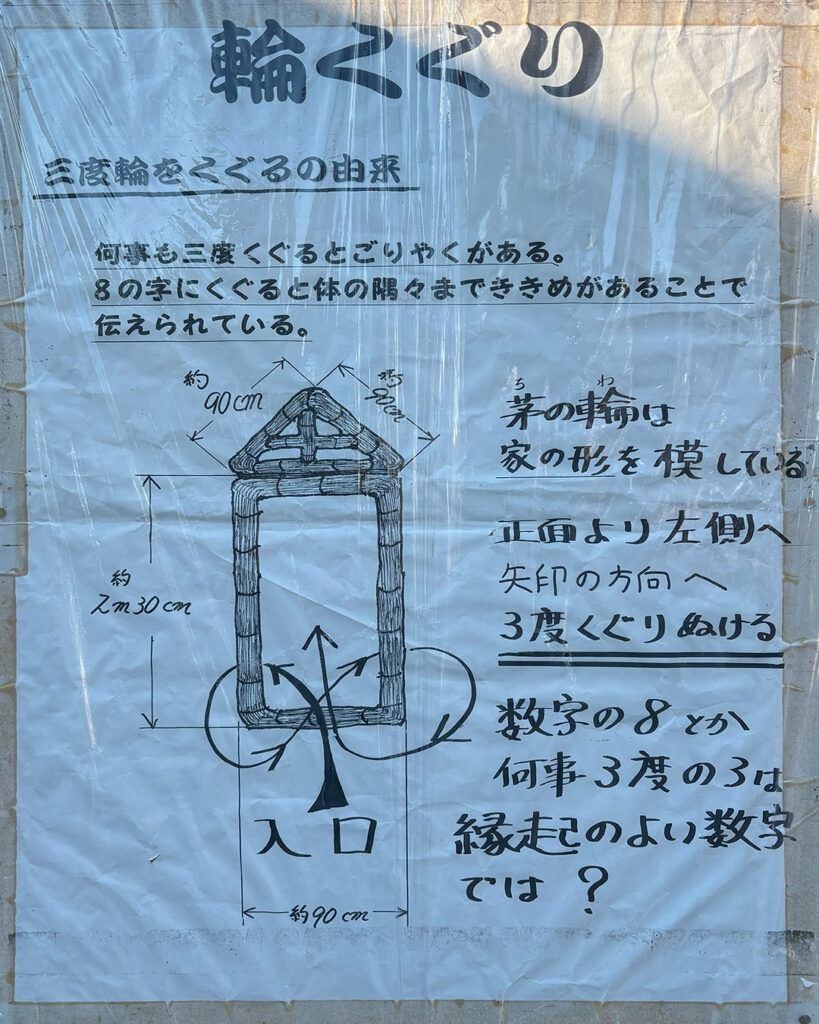 輪くぐり
三度輪をくぐるの由来
何事も三度くぐるとごりやくがある。
8の字にくぐると体の隅々までききめがあることで
伝えられている。
約
90cm
約
90cm
ち わ
茅の輪は
家の形を模している
正面より左側へ
矢印の方向へ
3度くぐりぬける
約
2m30cm
数字の8とか
何事3度の3は
縁起のよい数字
では?
入口
約90cm